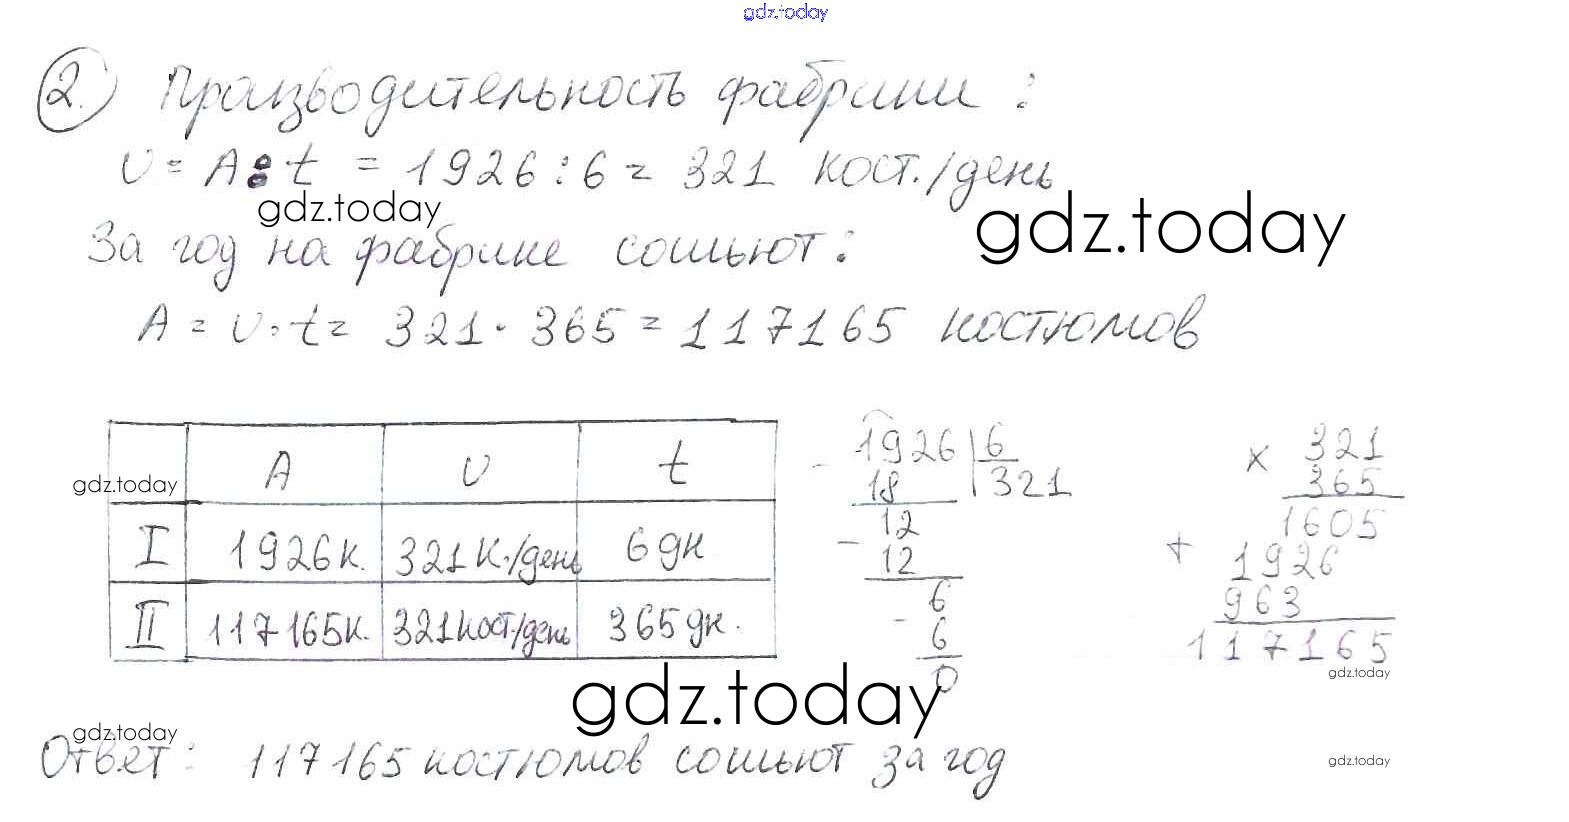 gdz.today
2. Производительность фабрики:
υ = A : t = 1926 : 6 = 321 кост./день
gdz.today
gdz.today
За год на фабрике сошьют:
A = υ · t = 321 · 365 = 117165 костюмов
A υ t
gdz.today
I 1926к. 321 к./день 6 дн
II 117165к. 321 кост./день 365 дн.
- 1926 | 6
18 321
12
- 12
6
- 6
0
× 321
365
1605
+ 1926
963
117165
gdz.today
gdz.today
gdz.today
Ответ: 117165 костюмов сошьют за год
gdz.today